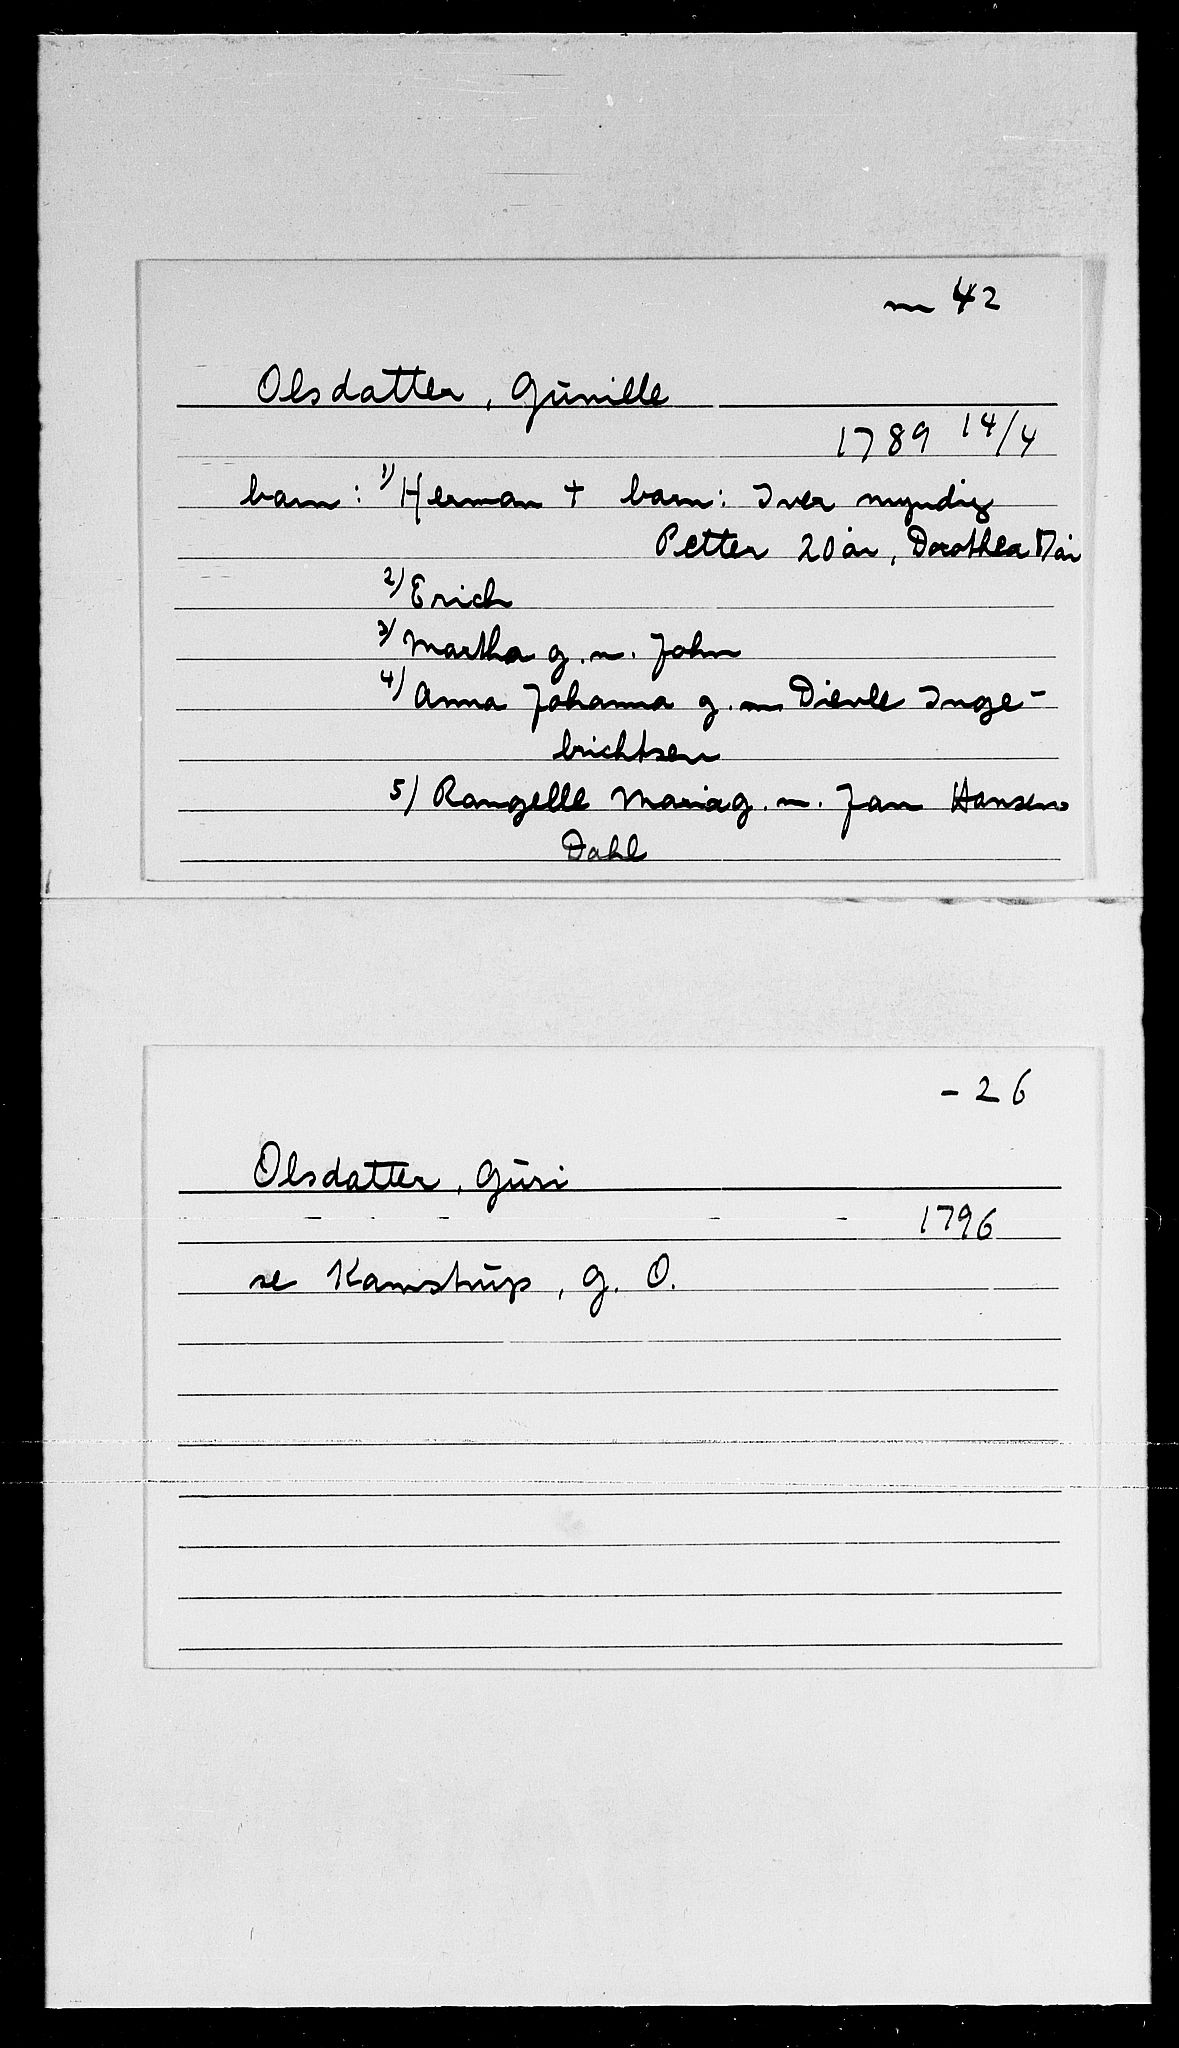 m 42
Olsdatter, Gūnille
1789 14/4
barn: 1) Herman + barn: Iver myndig
Petter 20 år, Dorothea 17 år
2) Erich
3) Martha g. m. John
4) Anna Johanna g. m. Dievle Inge-
brichtsen
5) Rangelle Maria g. m. Jan Hansen
Dahl
- 26
Olsdatter, Gūri
1796
se Kamstrūp, G. O.